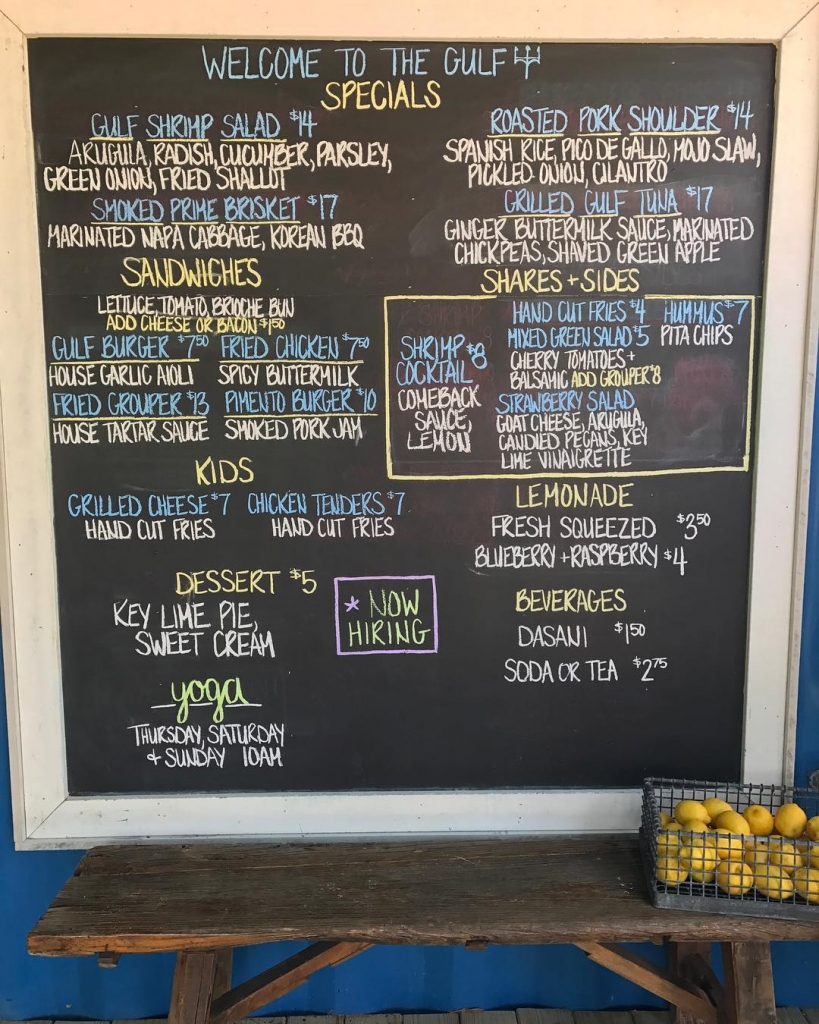 WELCOME TO THE GULF
SPECIALS
GULF SHRIMP SALAD $14
ARUGULA, RADISH, CUCUMBER, PARSLEY,
GREEN ONION, FRIED SHALLOT
SMOKED PRIME BRISKET $17
MARINATED NAPA CABBAGE, KOREAN BBQ
ROASTED PORK SHOULDER $14
SPANISH RICE, PICO DE GALLO, MOJO SLAW,
PICKLED ONION, CILANTRO
GRILLED GULF TUNA $17
GINGER BUTTERMILK SAUCE, MARINATED
CHICKPEAS, SHAVED GREEN APPLE
SANDWICHES
LETTUCE, TOMATO, BRIOCHE BUN
ADD CHEESE OR BACON $1.50
GULF BURGER $7.50
HOUSE GARLIC AIOLI
FRIED CHICKEN $7.50
SPICY BUTTERMILK
FRIED GROUPER $13
HOUSE TARTAR SAUCE
PIMENTO BURGER $10
SMOKED PORK JAM
SHARES + SIDES
SHRIMP $8
COCKTAIL
COMEBACK
SAUCE,
LEMON
HAND CUT FRIES $4
MIXED GREEN SALAD $5
CHERRY TOMATOES +
BALSAMIC ADD GROUPER $8
STRAWBERRY SALAD
GOAT CHEESE, ARUGULA,
CANDIED PECANS, KEY
LIME VINAIGRETTE
HUMMUS $7
PITA CHIPS
KIDS
GRILLED CHEESE $7
HAND CUT FRIES
CHICKEN TENDERS $7
HAND CUT FRIES
LEMONADE
FRESH SQUEEZED $3.50
BLUEBERRY + RASPBERRY $4
DESSERT $5
KEY LIME PIE,
SWEET CREAM
* NOW
HIRING
BEVERAGES
DASANI $1.50
SODA OR TEA $2.75
yoga
THURSDAY, SATURDAY
& SUNDAY 10AM